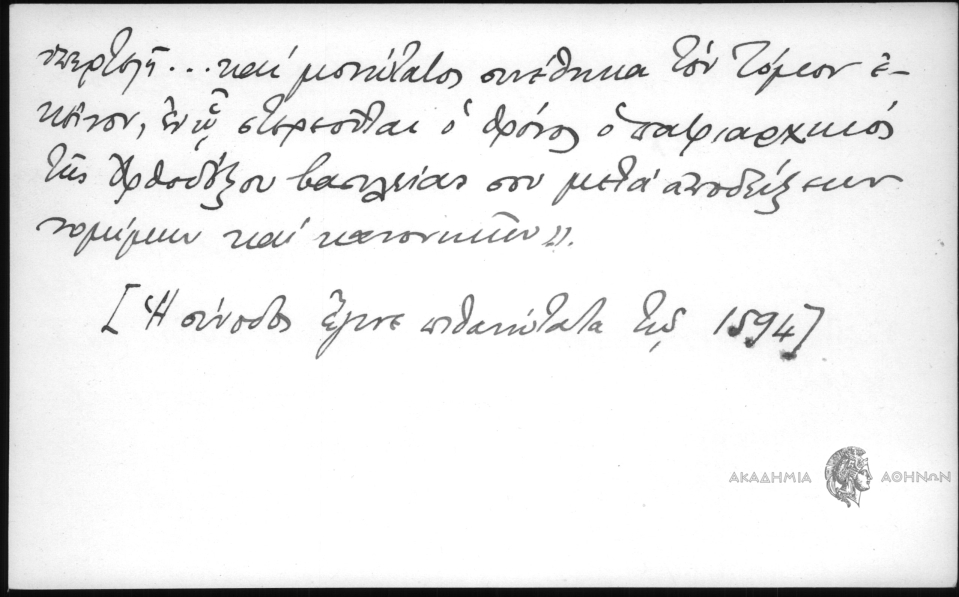 ὑπερτελῆ... καί μονώτατος συνέθηκα τόν Τόμον ἐ-
κεῖνον, ἐν ᾧ στερεοῦται ὁ θρόνος ὁ πατριαρχικός
τῆς Ὀρθοδόξου βασιλείας σου μετά ἀποδείξεων
νομίμων καί κανονικῶν».
[Ἡ σύνοδος ἔγινε πιθανώτατα τῷ 1594]
ΑΚΑΔΗΜΙΑ ΑΘΗΝΩΝ